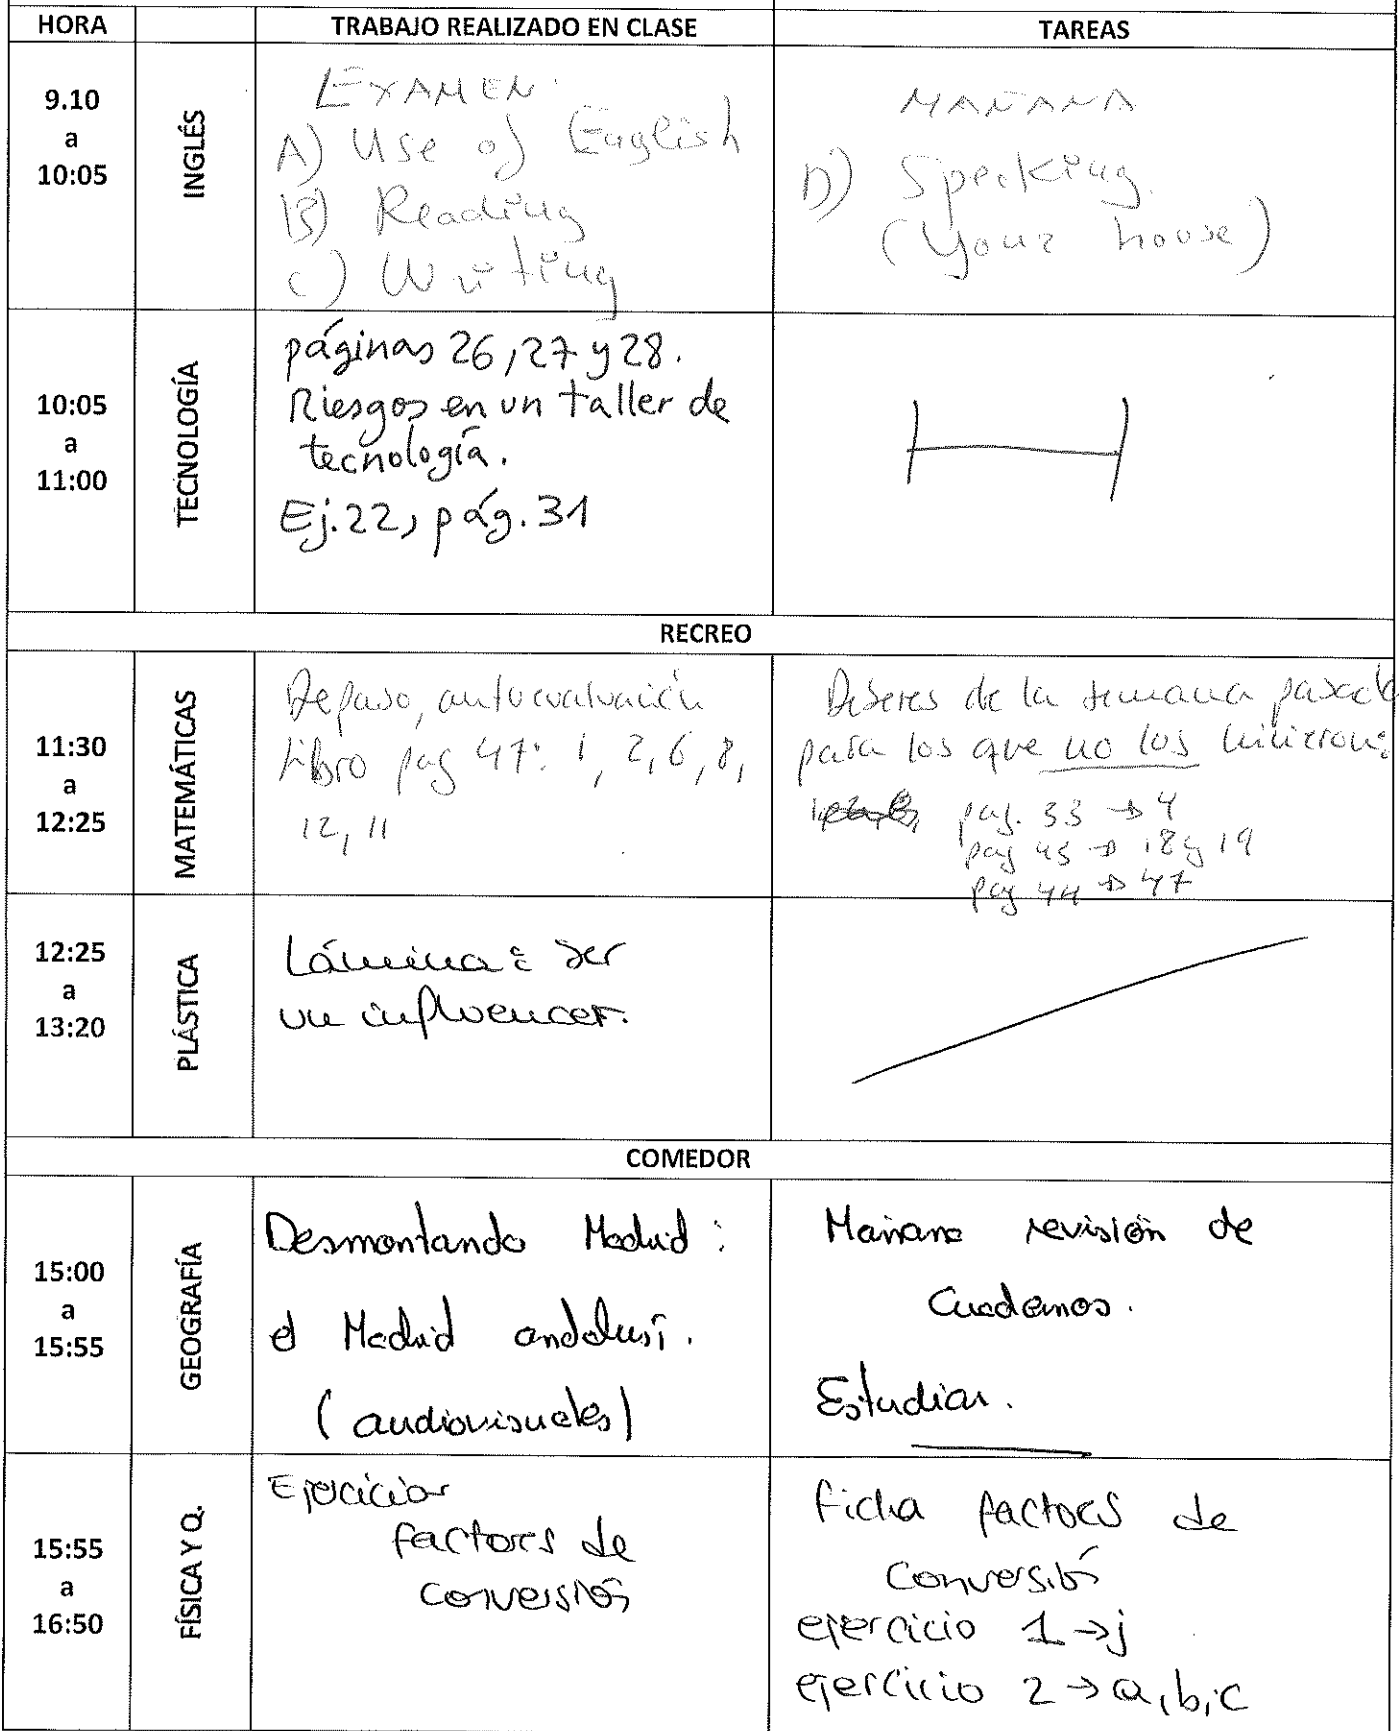 HORA TRABAJO REALIZADO EN CLASE TAREAS
9.10
a
10:05
INGLÉS
EXAMEN
A) Use of English
B) Reading
C) Writing
MAÑANA
D) Speaking.
(your house)
10:05
a
11:00
TECNOLOGÍA
páginas 26, 27 y 28.
Riesgos en un taller de
tecnología.
Ej. 22, pág. 31
RECREO
11:30
a
12:25
MATEMÁTICAS
Repaso, autoevaluación
Libro pag 47: 1, 2, 6, 8,
12, 11
Deberes de la semana pasada
para los que no los hicieron:
pag. 33 → 4
pag 43 → 18 y 19
pag 44 → 47
12:25
a
13:20
PLÁSTICA
Lámina: Ser
un influencer.
COMEDOR
15:00
a
15:55
GEOGRAFÍA
Desmontando Madrid:
el Madrid andalusí.
(audiovisuales)
Mañana revisión de
Cuadernos.
Estudiar.
15:55
a
16:50
FÍSICA Y Q.
Ejercicios
factores de
conversión
ficha factores de
conversión
ejercicio 1 → j
ejercicio 2 → a, b, c